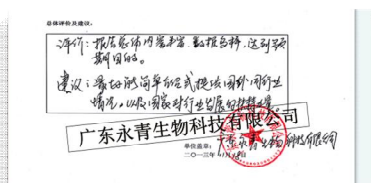 总体评价及建议:
评价: 报告总体内容丰富 数据多样. 达到预
期目的.
建议: 最好能简单的形式提供国外同行业
情况. 以及国家对行业发展的
广东永青生物科技有限公司
单位盖章:
二〇一三年